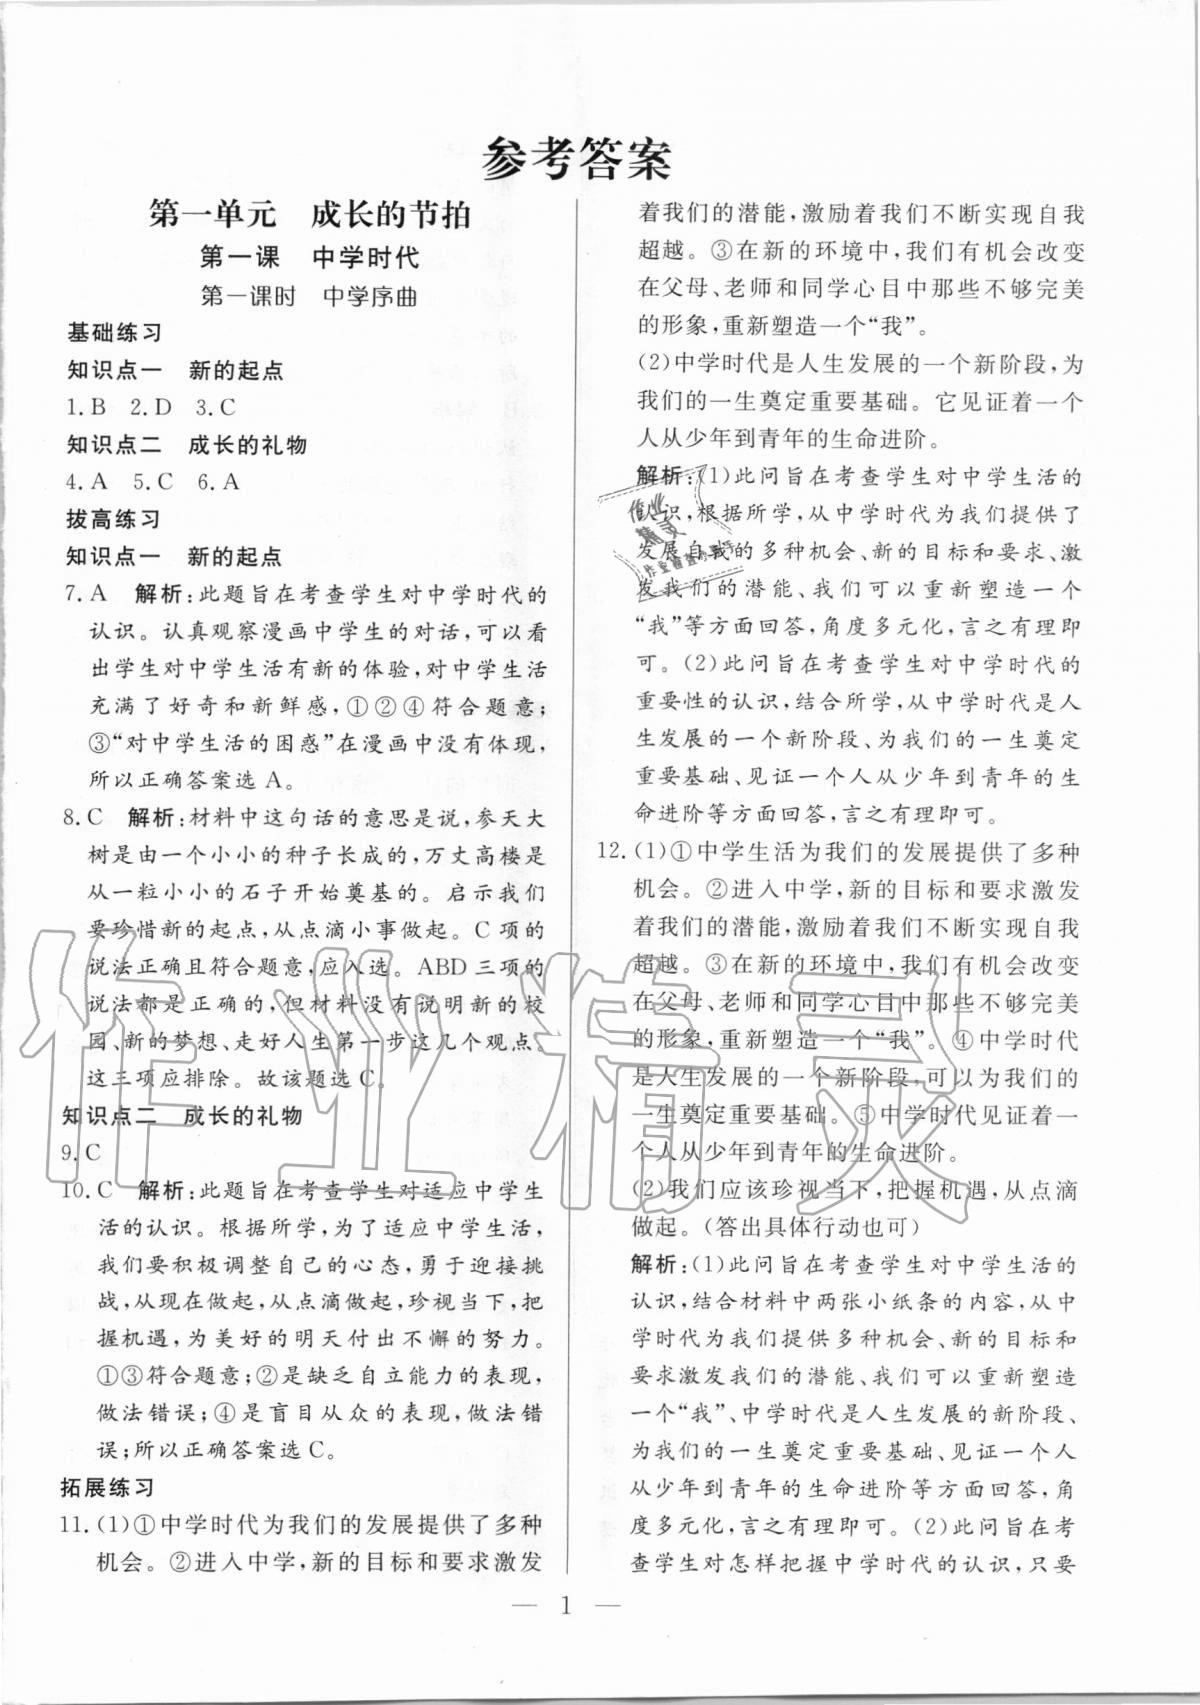 参考答案
第一单元　成长的节拍
第一课　中学时代
第一课时　中学序曲
基础练习
知识点一　新的起点
1.B　2.D　3.C
知识点二　成长的礼物
4.A　5.C　6.A
拔高练习
知识点一　新的起点
7.A　解析:此题旨在考查学生对中学时代的
认识。认真观察漫画中学生的对话,可以看
出学生对中学生活有新的体验,对中学生活
充满了好奇和新鲜感,①②④符合题意;
③“对中学生活的困惑”在漫画中没有体现,
所以正确答案选A。
8.C　解析:材料中这句话的意思是说,参天大
树是由一个小小的种子长成的,万丈高楼是
从一粒小小的石子开始奠基的。启示我们
要珍惜新的起点,从点滴小事做起。C项的
说法正确且符合题意,应入选。ABD三项的
说法都是正确的,但材料没有说明新的校
园、新的梦想、走好人生第一步这几个观点。
这三项应排除。故该题选C。
知识点二　成长的礼物
9.C
10.C　解析:此题旨在考查学生对适应中学生
活的认识。根据所学,为了适应中学生活,
我们要积极调整自己的心态,勇于迎接挑
战,从现在做起,从点滴做起,珍视当下,把
握机遇,为美好的明天付出不懈的努力。
①③符合题意;②是缺乏自立能力的表现,
做法错误;④是盲目从众的表现,做法错
误;所以正确答案选C。
拓展练习
11.(1)①中学时代为我们的发展提供了多种
机会。②进入中学,新的目标和要求激发
着我们的潜能,激励着我们不断实现自我
超越。③在新的环境中,我们有机会改变
在父母、老师和同学心目中那些不够完美
的形象,重新塑造一个“我”。
(2)中学时代是人生发展的一个新阶段,为
我们的一生奠定重要基础。它见证着一个
人从少年到青年的生命进阶。
解析:(1)此问旨在考查学生对中学生活的
认识,根据所学,从中学时代为我们提供了
发展自我的多种机会、新的目标和要求、激
发我们的潜能、我们可以重新塑造一个
“我”等方面回答,角度多元化,言之有理即
可。(2)此问旨在考查学生对中学时代的
重要性的认识,结合所学,从中学时代是人
生发展的一个新阶段、为我们的一生奠定
重要基础、见证一个人从少年到青年的生
命进阶等方面回答,言之有理即可。
12.(1)①中学生活为我们的发展提供了多种
机会。②进入中学,新的目标和要求激发
着我们的潜能,激励着我们不断实现自我
超越。③在新的环境中,我们有机会改变
在父母、老师和同学心目中那些不够完美
的形象,重新塑造一个“我”。④中学时代
是人生发展的一个新阶段,可以为我们的
一生奠定重要基础。⑤中学时代见证着一
个人从少年到青年的生命进阶。
(2)我们应该珍视当下,把握机遇,从点滴
做起。(答出具体行动也可)
解析:(1)此问旨在考查学生对中学生活的
认识,结合材料中两张小纸条的内容,从中
学时代为我们提供多种机会、新的目标和
要求激发我们的潜能、我们可以重新塑造
一个“我”、中学时代是人生发展的新阶段、
为我们的一生奠定重要基础、见证一个人
从少年到青年的生命进阶等方面回答,角
度多元化,言之有理即可。(2)此问旨在考
查学生对怎样把握中学时代的认识,只要
— 1 —
作业精灵